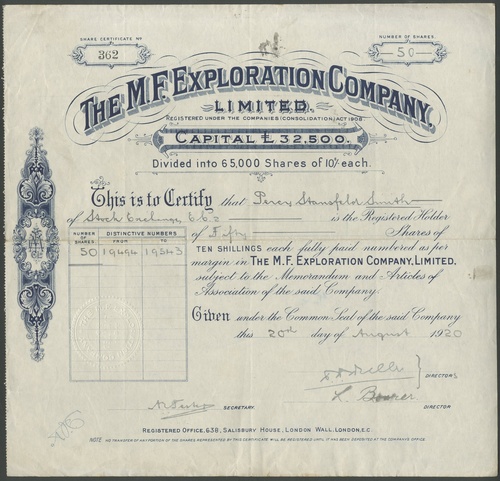 SHARE CERTIFICATE Nº
362
NUMBER OF SHARES.
50
THE M.F. EXPLORATION COMPANY,
LIMITED.
REGISTERED UNDER THE COMPANIES (CONSOLIDATION) ACT 1908.
CAPITAL £32,500.
Divided into 65,000 Shares of 10/- each.
This is to Certify that Percy Stansfeld Smith
of Stock Exchange, E.C.2 is the Registered Holder
of Fifty Shares of
TEN SHILLINGS each fully paid numbered as per
margin in THE M.F. EXPLORATION COMPANY, LIMITED,
subject to the Memorandum and Articles of
Association of the said Company.
NUMBER OF SHARES
DISTINCTIVE NUMBERS
FROM TO
50 19494 19543
Given under the Common Seal of the said Company
this 20th day of August 1920
DIRECTORS
SECRETARY.
DIRECTOR.
REGISTERED OFFICE, 638, SALISBURY HOUSE, LONDON WALL, LONDON, E.C.
NOTE NO TRANSFER OF ANY PORTION OF THE SHARES REPRESENTED BY THIS CERTIFICATE WILL BE REGISTERED UNTIL IT HAS BEEN DEPOSITED AT THE COMPANY'S OFFICE.